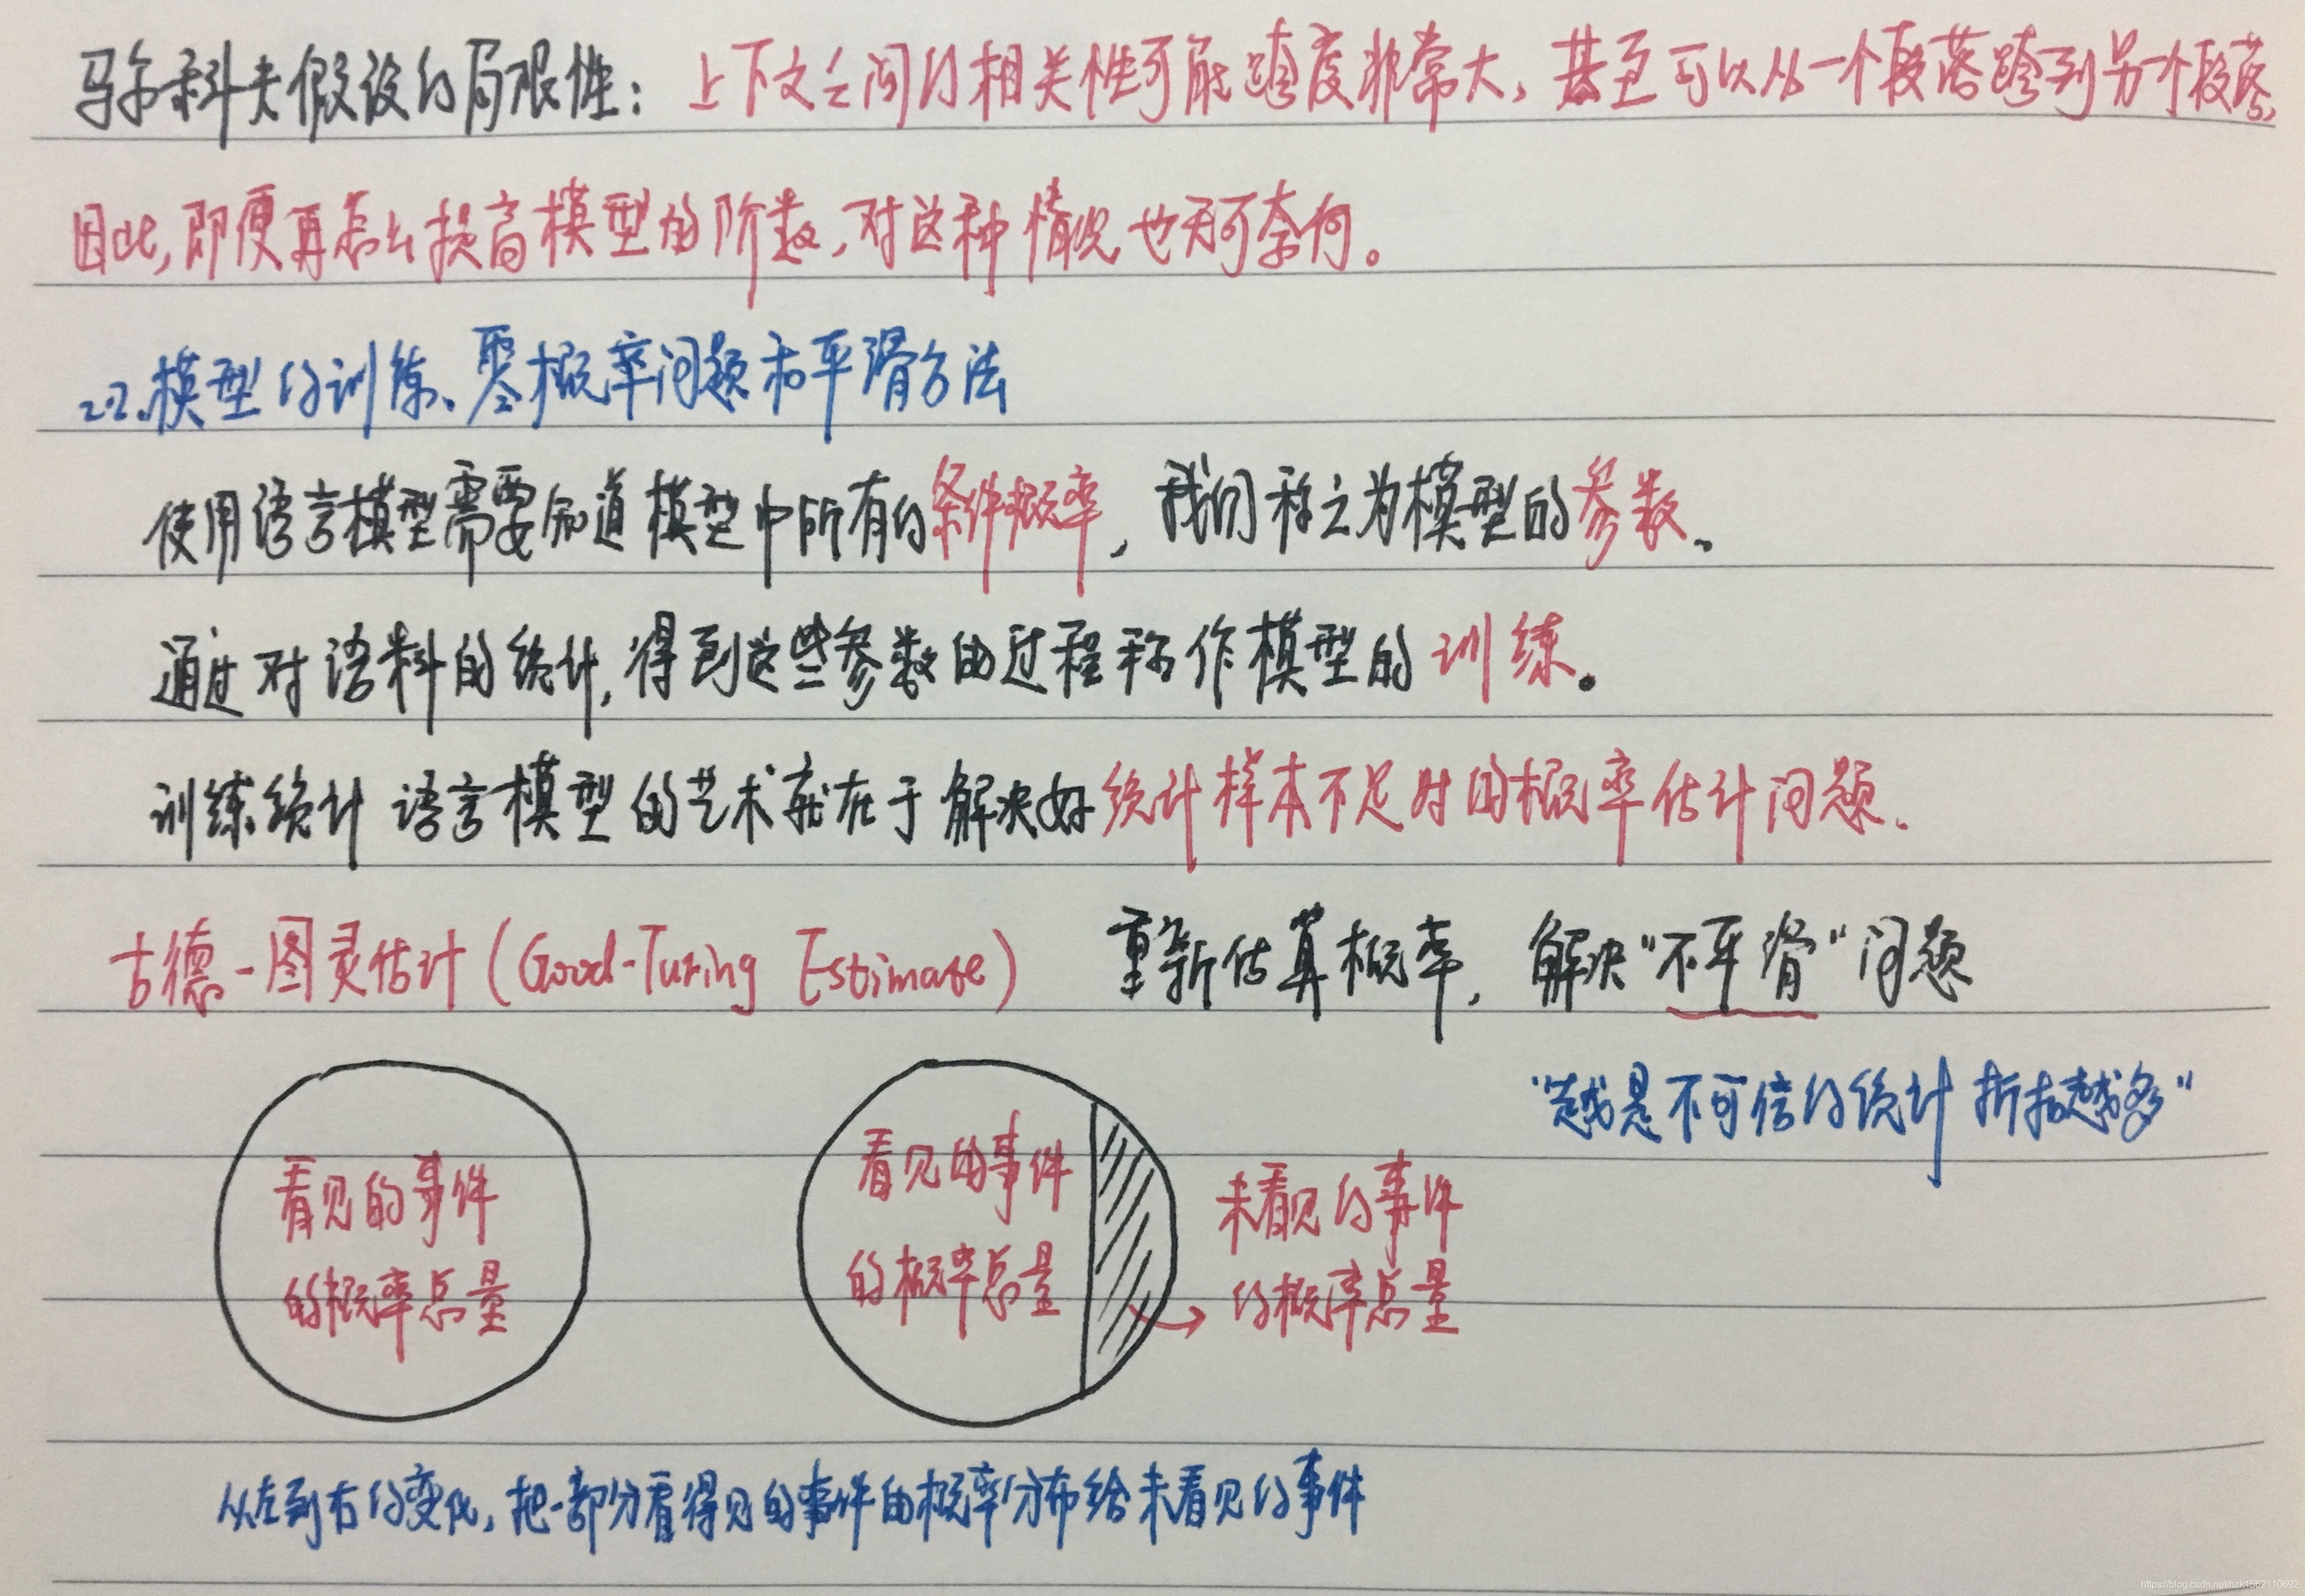 马尔科夫假设的局限性：上下文之间的相关性可能跨度非常大，甚至可以从一个段落跨到另一个段落，
因此，即便再怎么提高模型的阶数，对这种情况也无可奈何。
2.2.模型的训练、零概率问题和平滑方法
使用语言模型需要知道模型中所有的条件概率，我们称之为模型的参数。
通过对语料的统计，得到这些参数的过程称作模型的训练。
训练统计语言模型的艺术就在于解决好统计样本不足时的概率估计问题。
古德-图灵估计（Good-Turing Estimate） 重新估算概率，解决“不平滑”问题
“越是不可信的统计折扣越多”
看见的事件
的概率总量
看见的事件
的概率总量
未看见的事件
的概率总量
从左到右的变化，把一部分看得见的事件的概率分布给未看见的事件
https://blog.csdn.net/hzk1562110692